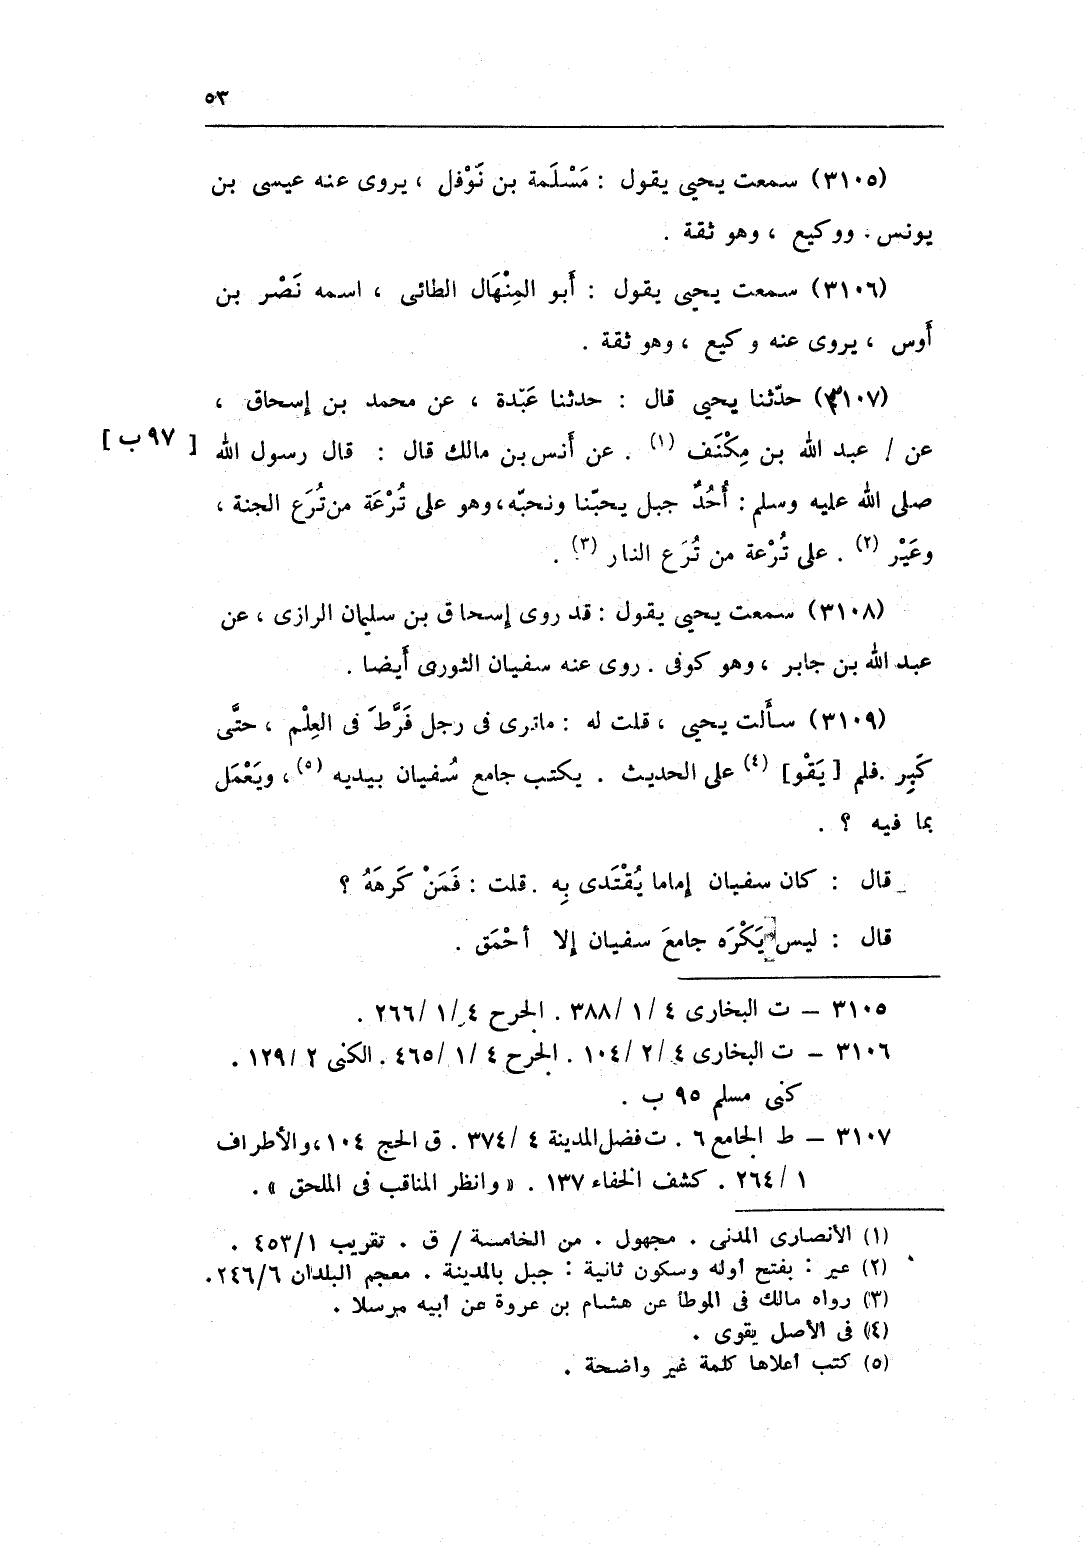 ٥٣
(٣١٠٥) سمعت يحيى يقول : مَسْلَمة بن نَوْفل ، يروى عنه عيسى بن
يونس . ووكيع ، وهو ثقة .
(٣١٠٦) سمعت يحيى يقول : أَبو المِنْهَال الطائى ، اسمه نَصْر بن
أَوس ، يروى عنه وكيع ، وهو ثقة .
(٣١٠٧) حدّثنا يحيى قال : حدثنا عَبّدة ، عن محمد بن إسحاق ،
عن / عبد الله بن مِكْنَف (١) . عن أَنس بن مالك قال : قال رسول الله [ ٩٧ ب ]
صلى الله عليه وسلم : أُحُدٌ جبل يحبّنا ونحبّه، وهو على تُرْعَة من تُرَع الجنة ،
وعَيْر (٢) . على تُرْعة من تُرَع النار (٣) .
(٣١٠٨) سمعت يحيى يقول : قد روى إسحاق بن سليمان الرازى ، عن
عبد الله بن جابر ، وهو كوفى . روى عنه سفيان الثورى أَيضا .
(٣١٠٩) سأَلت يحيى ، قلت له : ماترى فى رجل فَرَّطَ فى العِلْم ، حتَّى
كَبِر . فلم [ يَقْو] (٤) على الحديث . يكتب جامع سُفيان بيديه (٥) ، ويَعْمَل
بما فيه ؟ .
قال : كان سفيان إماما يُقْتَدى بِه . قلت : فَمَنْ كَرهَهُ ؟
قال : ليس يَكْرَه جامعَ سفيان إلا أحْمَق .
٣١٠٥ – ت البخارى ٤ /١ /٣٨٨ . الجرح ٤ /١ /٢٦٦ .
٣١٠٦ – ت البخارى ٤ /٢ /١٠٤ . الجرح ٤ /١ /٤٦٥ . الكنى ٢ /١٢٩ .
كنى مسلم ٩٥ ب .
٣١٠٧ – ط الجامع ٦ . ت فضل المدينة ٤ /٣٧٤ . ق الحج ١٠٤ ، والأطراف
١ /٢٦٤ . كشف الخفاء ١٣٧ . « وانظر المناقب فى الملحق » .
(١) الأنصارى المدنى . مجهول . من الخامسة / ق . تقريب ١/٤٥٣ .
(٢) عير : بفتح أوله وسكون ثانية : جبل بالمدينة . معجم البلدان ٦/٢٤٦ .
(٣) رواه مالك فى الموطأ عن هشام بن عروة عن أبيه مرسلا .
(٤) فى الأصل يقوى .
(٥) كتب أعلاها كلمة غير واضحة .